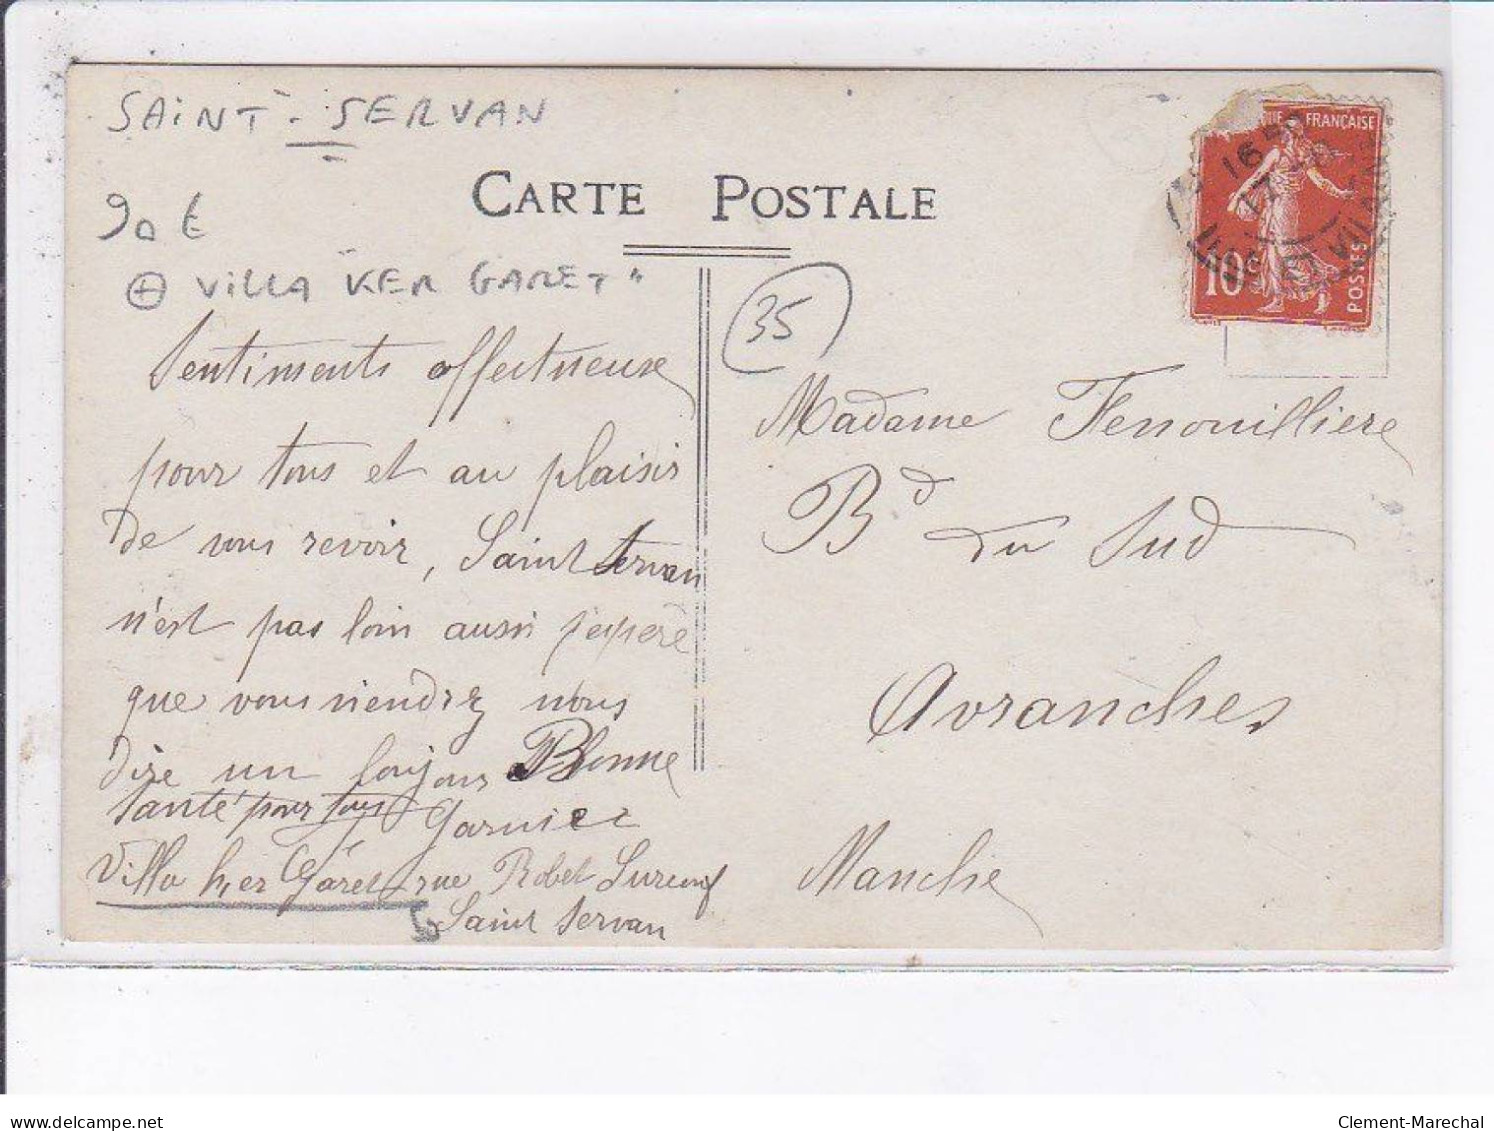 SAINT-SERVAN
CARTE POSTALE
90 €
+ VILLA KER GARET"
35
FRANÇAISE
16
17
10
POSTES
VILAINE
Sentiments affectueux
pour tous et au plaisir
de vous revoir, Saint Servan
n'est pas loin aussi j'espere
que vous viendrez nous
dire un bonjour Bonne
Santé pour tous Garnier
Villa Ker Garet rue Robet Surcouf
Saint Servan
Madame Fenouilliere
Bd du Sud
Avranches
Manche
delcampe.net
Clement-Marechal